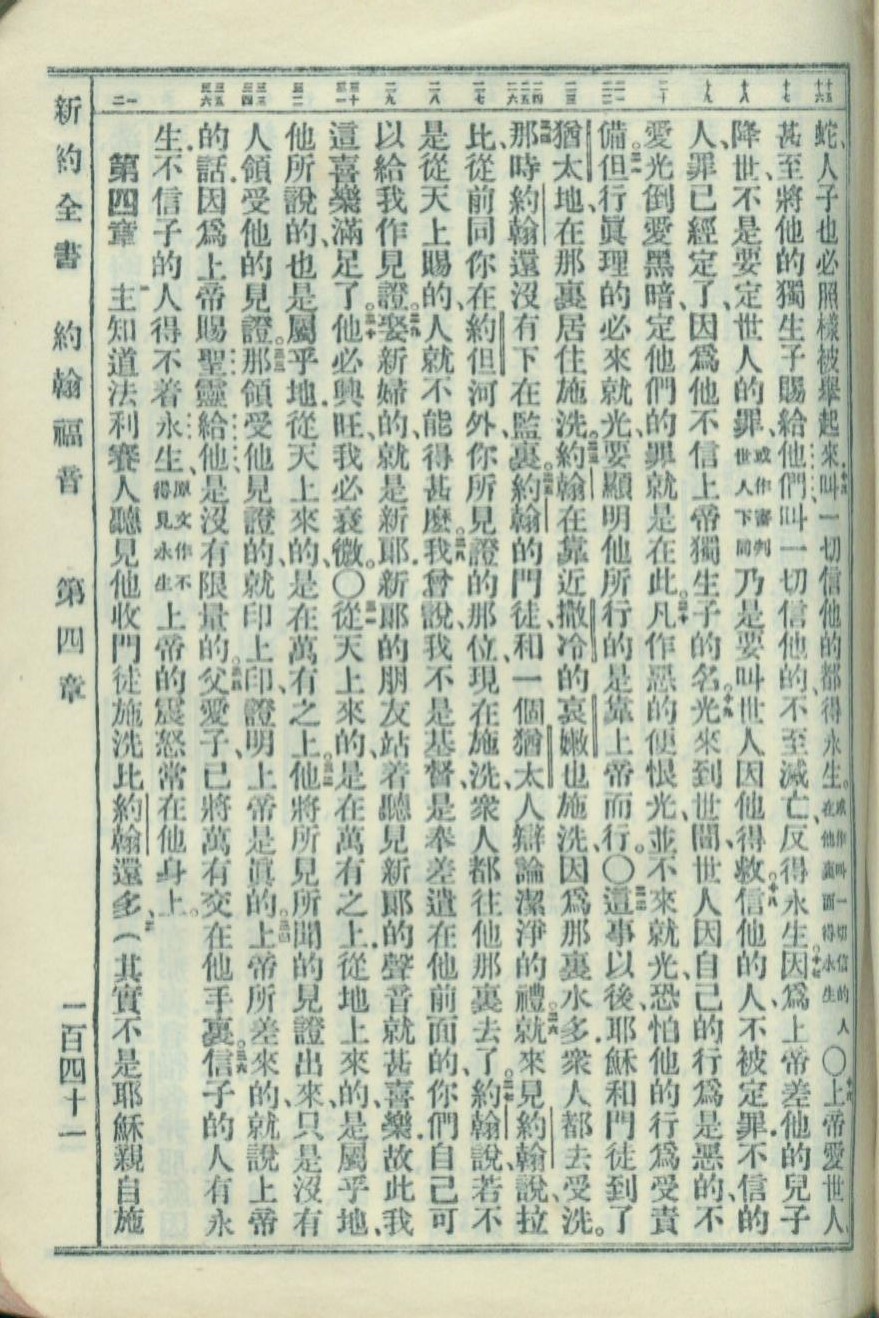 蛇、人子也必照樣被舉起來叫一切信他的都得永生。或作叫一切信的人在他裏面得永生〇上帝愛世人、
甚至將他的獨生子賜給他們叫一切信他的、不至滅亡、反得永生因爲上帝差他的兒子
降世、不是要定世人的罪、或作審判世人下同乃是要叫世人因他得救信他的人、不被定罪.不信的
人、罪已經定了、因爲他不信上帝獨生子的名光來到世間、世人因自己的行爲是惡的、不
愛光倒愛黑暗定他們的罪就是在此。凡作惡的便恨光、並不來就光、恐怕他的行爲受責
備但行眞理的必來就光、要顯明他所行的是靠上帝而行。〇這事以後、耶穌和門徒到了
猶太地、在那裏居住施洗。約翰在靠近撒冷的哀嫩也施洗、因爲那裏水多.衆人都去受洗。
那時約翰還沒有下在監裏約翰的門徒、和一個猶太人辯論潔淨的禮就來見約翰說、拉
比、從前同你在約但河外、你所見證的那位、現在施洗、衆人都往他那裏去了約翰說、若不
是從天上賜的、人就不能得甚麼。我曾說、我不是基督、是奉差遣在他前面的、你們自己可
以給我作見證。娶新婦的、就是新郎.新郎的朋友站着聽見新郎的聲音就甚喜樂.故此我
這喜樂滿足了他必興旺.我必衰微。〇從天上來的、是在萬有之上.從地上來的、是屬乎地、
他所說的也是屬乎地.從天上來的、是在萬有之上。他將所見所聞的見證出來、只是沒有
人領受他的見證。那領受他見證的、就印上印、證明上帝是眞的。上帝所差來的、就說上帝
的話.因爲上帝賜聖靈給他、是沒有限量的父愛子、已將萬有交在他手裏。信子的人有永
生.不信子的人得不着永生、原文作不得見永生上帝的震怒常在他身上。
第四章　主知道法利賽人聽見他收門徒施洗比約翰還多、(其實不是耶穌親自施
十五
十六
十七
十八
十九
二十
二一
二二
二三
二四
二五
二六
二七
二八
二九
三十
三一
三二
三三
三四
三五
三六
一
二
新約全書　約翰福音　第四章　一百四十一